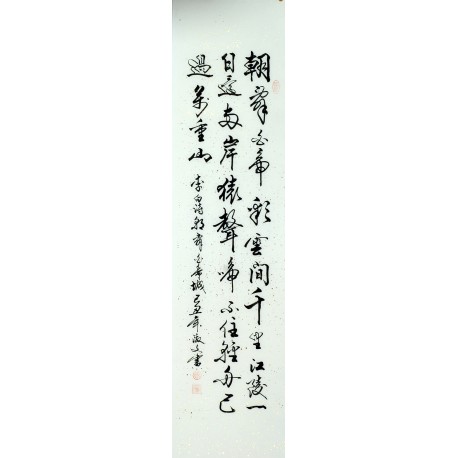 朝辞白帝彩雲間千里江陵一
日還兩岸猿聲啼不住輕舟已
過萬重山
李白詩朝辞白帝城己丑年文書